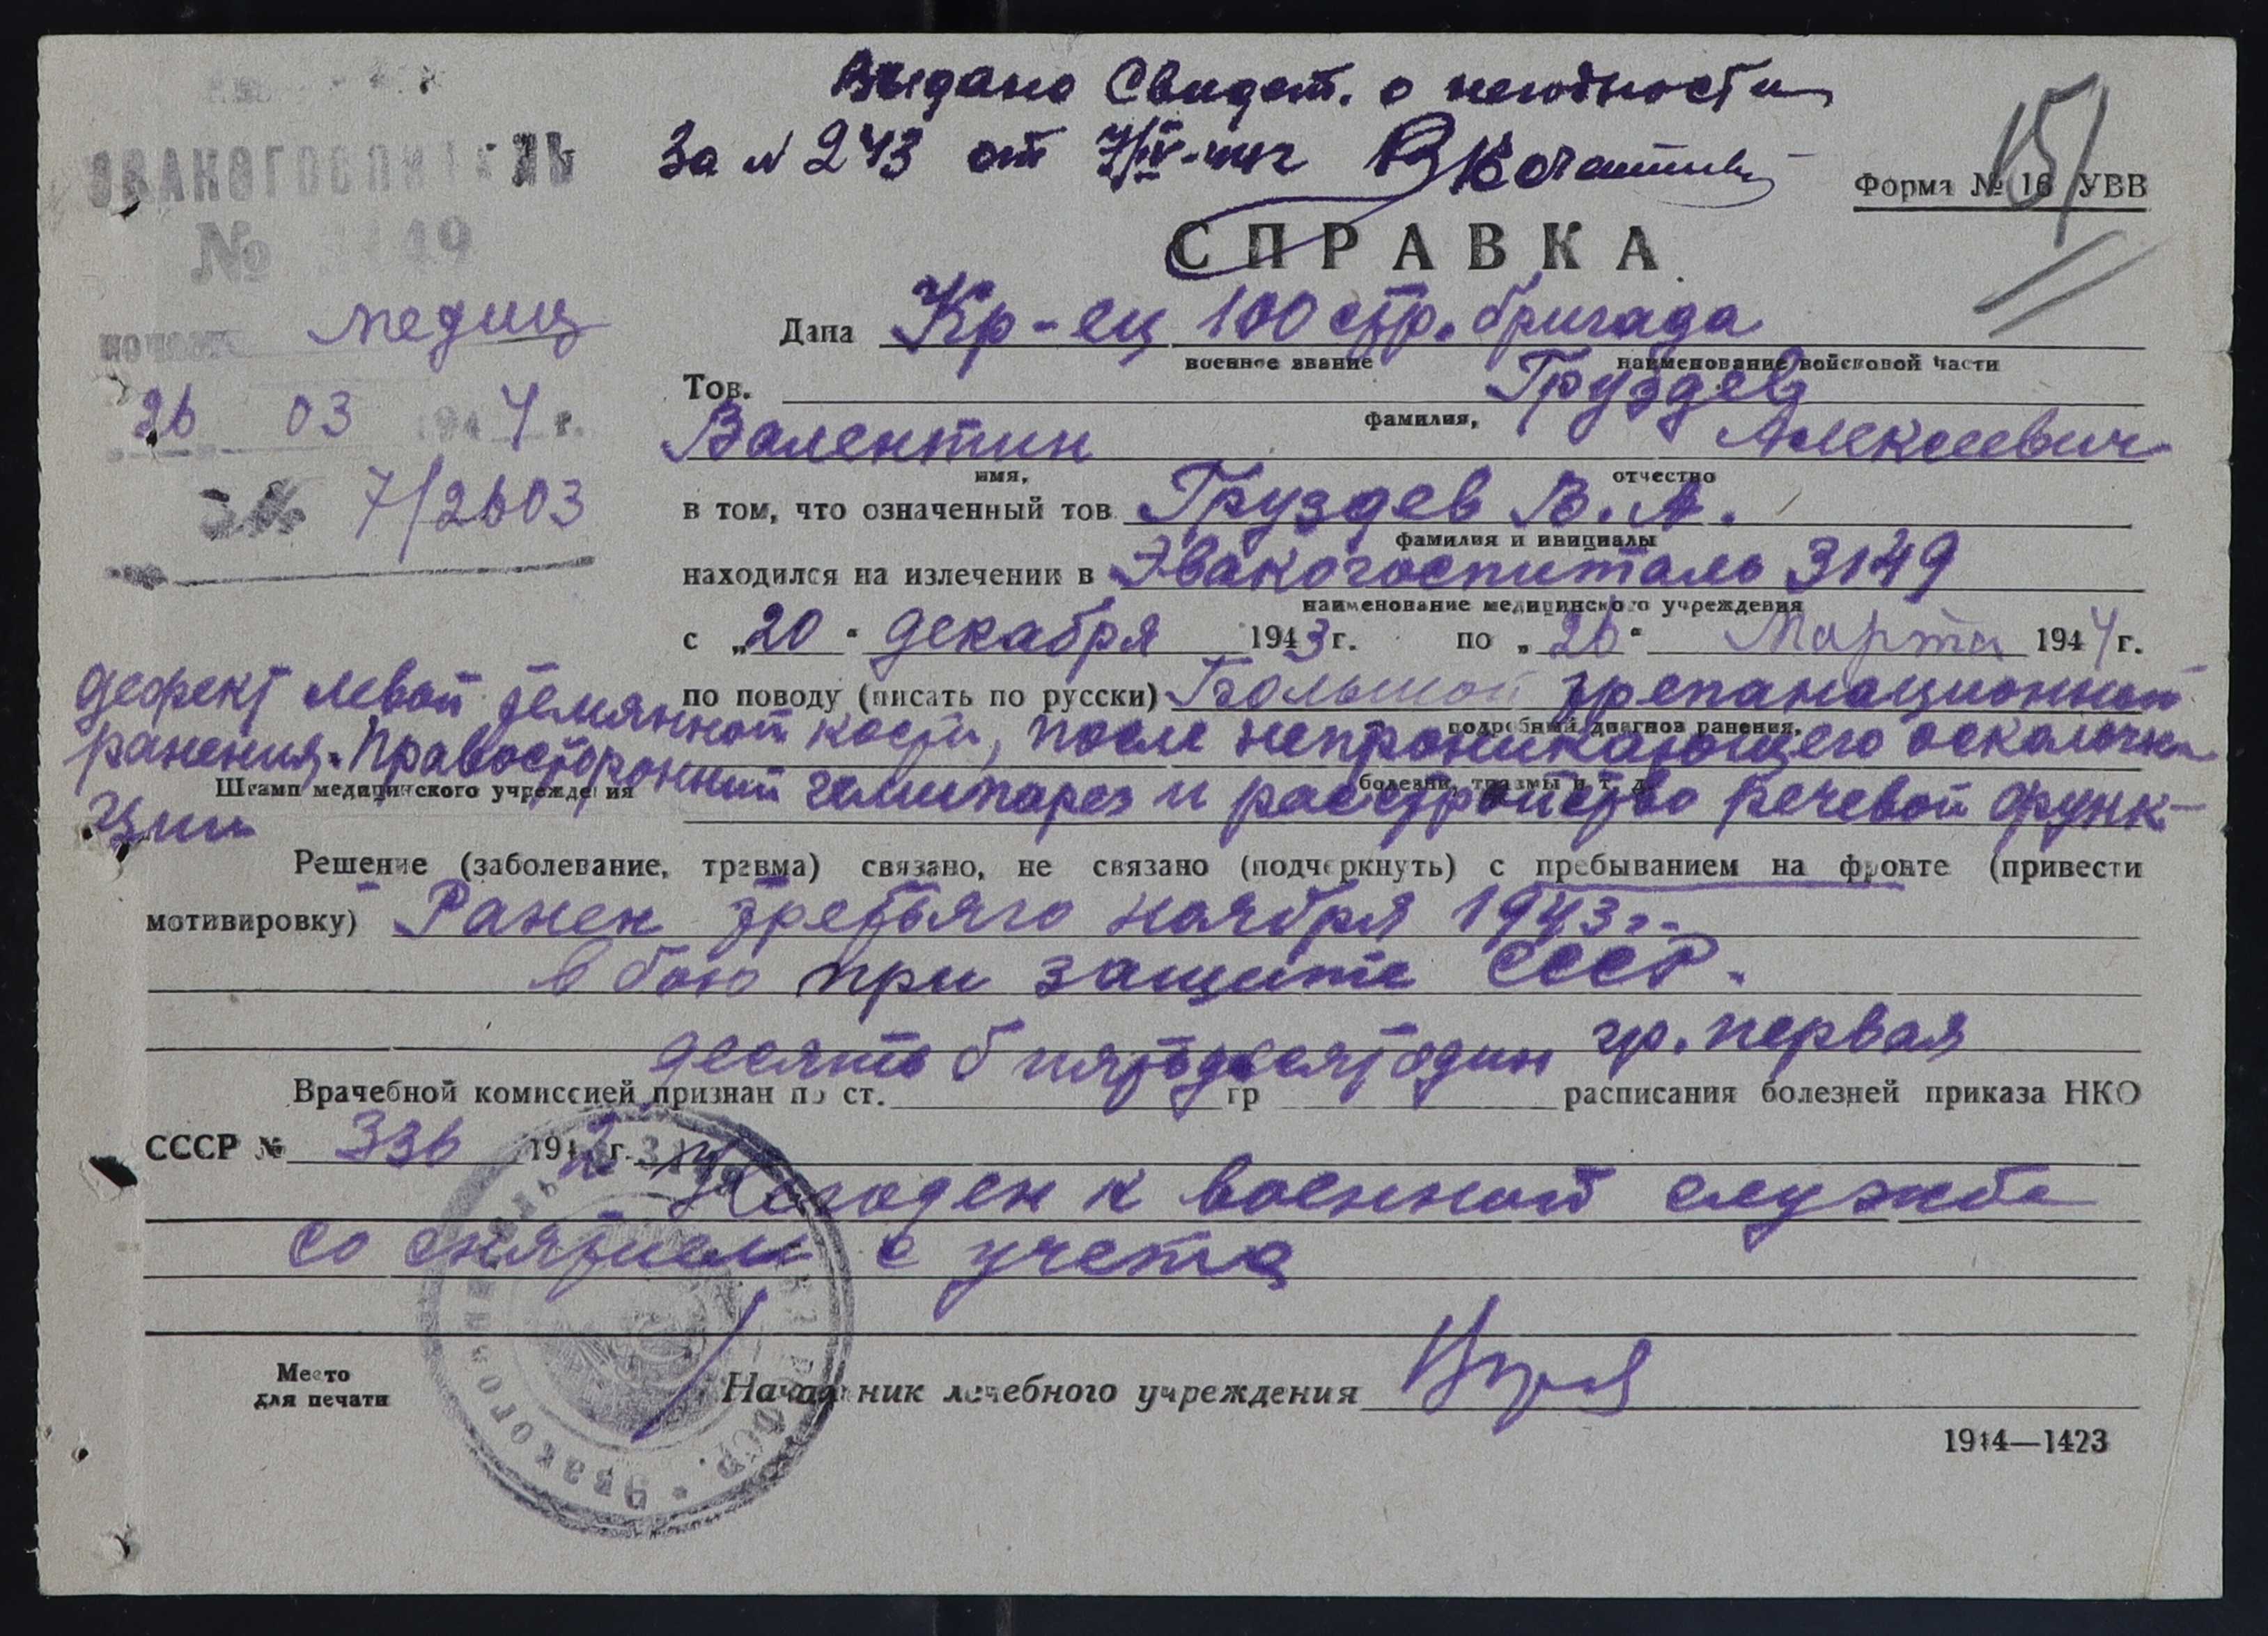 Выдано Свидет. о негодности
За № 243 от 7/IV-44г
151
Форма № 16 УВВ
ЭВАКОГОСПИТАЛЬ
№ 3149
СПРАВКА
медиц
26 03 1944 г.
№ 7/2603
Дана Кр-ец 100 стр. бригада
военное звание наименование войсковой части
Тов. Груздев
фамилия,
Валентин Алексеевич
имя, отчество
в том, что означенный тов. Груздев В. А.
фамилия и инициалы
находился на излечении в Эвакогоспиталь 3149
наименование медицинского учреждения
с „20" декабря 1943 г. по „26" Марта 1944 г.
по поводу (писать по русски) Большой трепанационный
подробный диагноз ранения,
дефект левой темянной кости, после непроникающего осколочн
болезни, травмы и т. д.
ранения. Правосторонний гемипарез и расстройство речевой функ-
Штамп медицинского учреждения
ции
Решение (заболевание, травма) связано, не связано (подчеркнуть) с пребыванием на фронте (привести
мотивировку) Ранен третьяго ноября 1943 г.
в бою при защите СССР.
десять б пятьдесят один гр. первая
Врачебной комиссией признан по ст. гр расписания болезней приказа НКО
СССР № 336 1942 г.
Негоден к военной службе
со снятием с учета
Место
для печати
Начальник лечебного учреждения
1944—1423